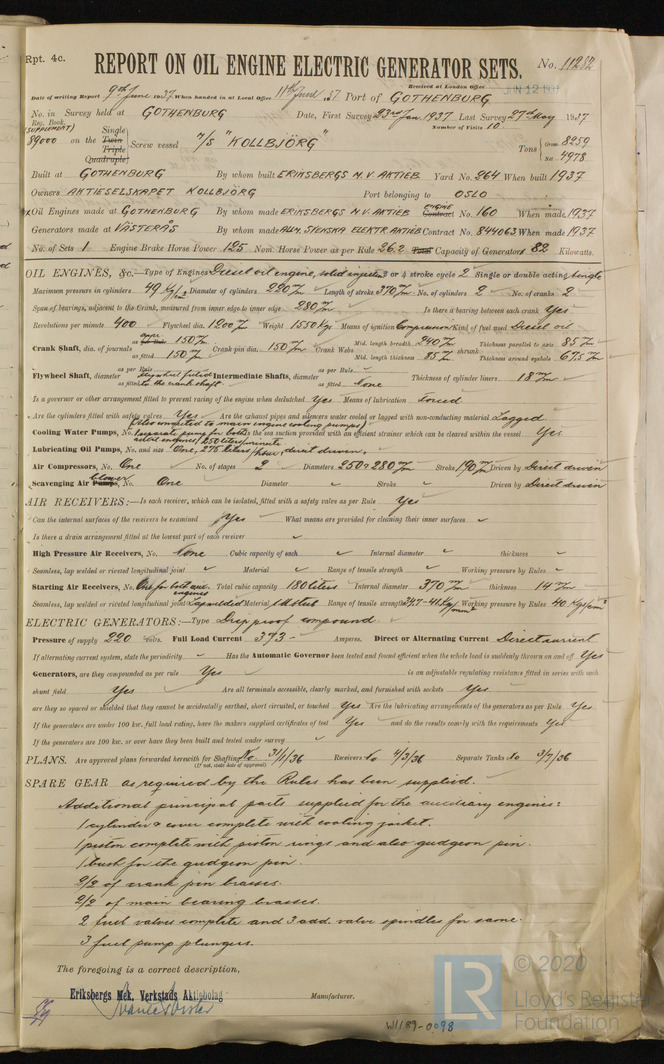 Rpt. 4c.
REPORT ON OIL ENGINE ELECTRIC GENERATOR SETS.
No. 11282
Received at London Office JUN 12 1937
Date of writing Report 9th June 1937 When handed in at Local Office 11th June 37 Port of GOTHENBURG
No. in Survey held at GOTHENBURG Date, First Survey 23rd Jan 1937 Last Survey 27th May 1937
Reg. Book. Number of Visits 10
(SUPPLEMENT) Single
89000 on the Twin Screw vessel M/S "KOLLBJÖRG" Tons Gross 8259
Triple Net 4978
Quadruple
Built at GOTHENBURG By whom built ERIKSBERGS M.V. AKTIEB Yard No. 264 When built 1937
Owners AKTIESELSKAPET KOLLBJÖRG Port belonging to OSLO
Oil Engines made at GOTHENBURG By whom made ERIKSBERGS M.V. AKTIEB ENGINE Contract No. 160 When made 1937
Generators made at VÄSTERÅS By whom made ALLM. SVENSKA ELEKTR. AKTIEB Contract No. 844063 When made 1937
No. of Sets 1 Engine Brake Horse Power 125 Nom. Horse Power as per Rule 26.2 Total Capacity of Generators 82 Kilowatts.
OIL ENGINES, &c.—Type of Engines Diesel oil engine, solid injection 2 or 4 stroke cycle 2 Single or double acting Single
Maximum pressure in cylinders 49 Kg/cm² Diameter of cylinders 220 m/m Length of stroke 370 m/m No. of cylinders 2 No. of cranks 2
Span of bearings, adjacent to the Crank, measured from inner edge to inner edge 280 m/m Is there a bearing between each crank Yes
Revolutions per minute 400 Flywheel dia. 1200 m/m Weight 1550 kgs Means of ignition Compression Kind of fuel used Diesel oil
Crank Shaft, dia. of journals as per Rule 150 m/m as fitted 150 m/m Crank pin dia. 150 m/m Crank Webs Mid. length breadth 240 m/m Mid. length thickness 85 m/m shrunk Thickness parallel to axis 85 m/m Thickness around eyehole 67.5 m/m
Flywheel Shaft, diameter as per Rule as fitted Flywheel fitted to the crank shaft Intermediate Shafts, diameter as per Rule as fitted None Thickness of cylinder liners 18 m/m
Is a governor or other arrangement fitted to prevent racing of the engine when declutched Yes Means of lubrication Forced
Are the cylinders fitted with safety valves Yes Are the exhaust pipes and silencers water cooled or lagged with non-conducting material Lagged
(Also connected to main engine cooling pumps)
Cooling Water Pumps, No. 1 separate pump for both aux. engines, 250 liters/minute Is the sea suction provided with an efficient strainer which can be cleared within the vessel Yes
Lubricating Oil Pumps, No. and size One, 275 liters/hour, direct driven.
Air Compressors, No. One No. of stages 2 Diameters 250 & 280 m/m Stroke 190 m/m Driven by Direct driven
Scavenging Air Pumps, blower No. One Diameter Stroke Driven by Direct driven
AIR RECEIVERS:—Is each receiver, which can be isolated, fitted with a safety valve as per Rule Yes
Can the internal surfaces of the receivers be examined Yes What means are provided for cleaning their inner surfaces
Is there a drain arrangement fitted at the lowest part of each receiver
High Pressure Air Receivers, No. None Cubic capacity of each Internal diameter thickness
Seamless, lap welded or riveted longitudinal joint Material Range of tensile strength Working pressure by Rules
Starting Air Receivers, No. One for both aux. engines Total cubic capacity 180 liters Internal diameter 370 m/m thickness 14 m/m
Seamless, lap welded or riveted longitudinal joint Lapwelded Material S.M. steel Range of tensile strength 34.7-41 Kg/mm² Working pressure by Rules 40 Kgs/cm²
ELECTRIC GENERATORS:—Type Drip proof compound
Pressure of supply 220 volts. Full Load Current 373 – Amperes. Direct or Alternating Current Direct current
If alternating current system, state the periodicity Has the Automatic Governor been tested and found efficient when the whole load is suddenly thrown on and off Yes
Generators, are they compounded as per rule Yes is an adjustable regulating resistance fitted in series with each
shunt field Yes Are all terminals accessible, clearly marked, and furnished with sockets Yes
are they so spaced or shielded that they cannot be accidentally earthed, short circuited, or touched Yes Are the lubricating arrangements of the generators as per Rule Yes
If the generators are under 100 kw. full load rating, have the makers supplied certificates of test Yes and do the results comply with the requirements Yes
If the generators are 100 kw. or over have they been built and tested under survey
PLANS. Are approved plans forwarded herewith for Shafting No. 31/1/36 Receivers No 4/3/36 Separate Tanks No 3/7/36
(If not, state date of approval)
SPARE GEAR as required by the Rules has been supplied.
Additional principal parts supplied for the auxiliary engines:
1 cylinder & cover complete with cooling jacket.
1 piston complete with piston rings and also gudgeon pin.
1 bush for the gudgeon pin.
2/2 of crank pin brasses.
2/2 of main bearing brasses.
2 fuel valves complete and 3 add. valve spindles for same.
3 fuel pump plungers.
The foregoing is a correct description,
Eriksbergs Mek. Verkstads Aktiebolag
Manufacturer.
W1189-0098
LR
© 2020
Lloyd's Register
Foundation